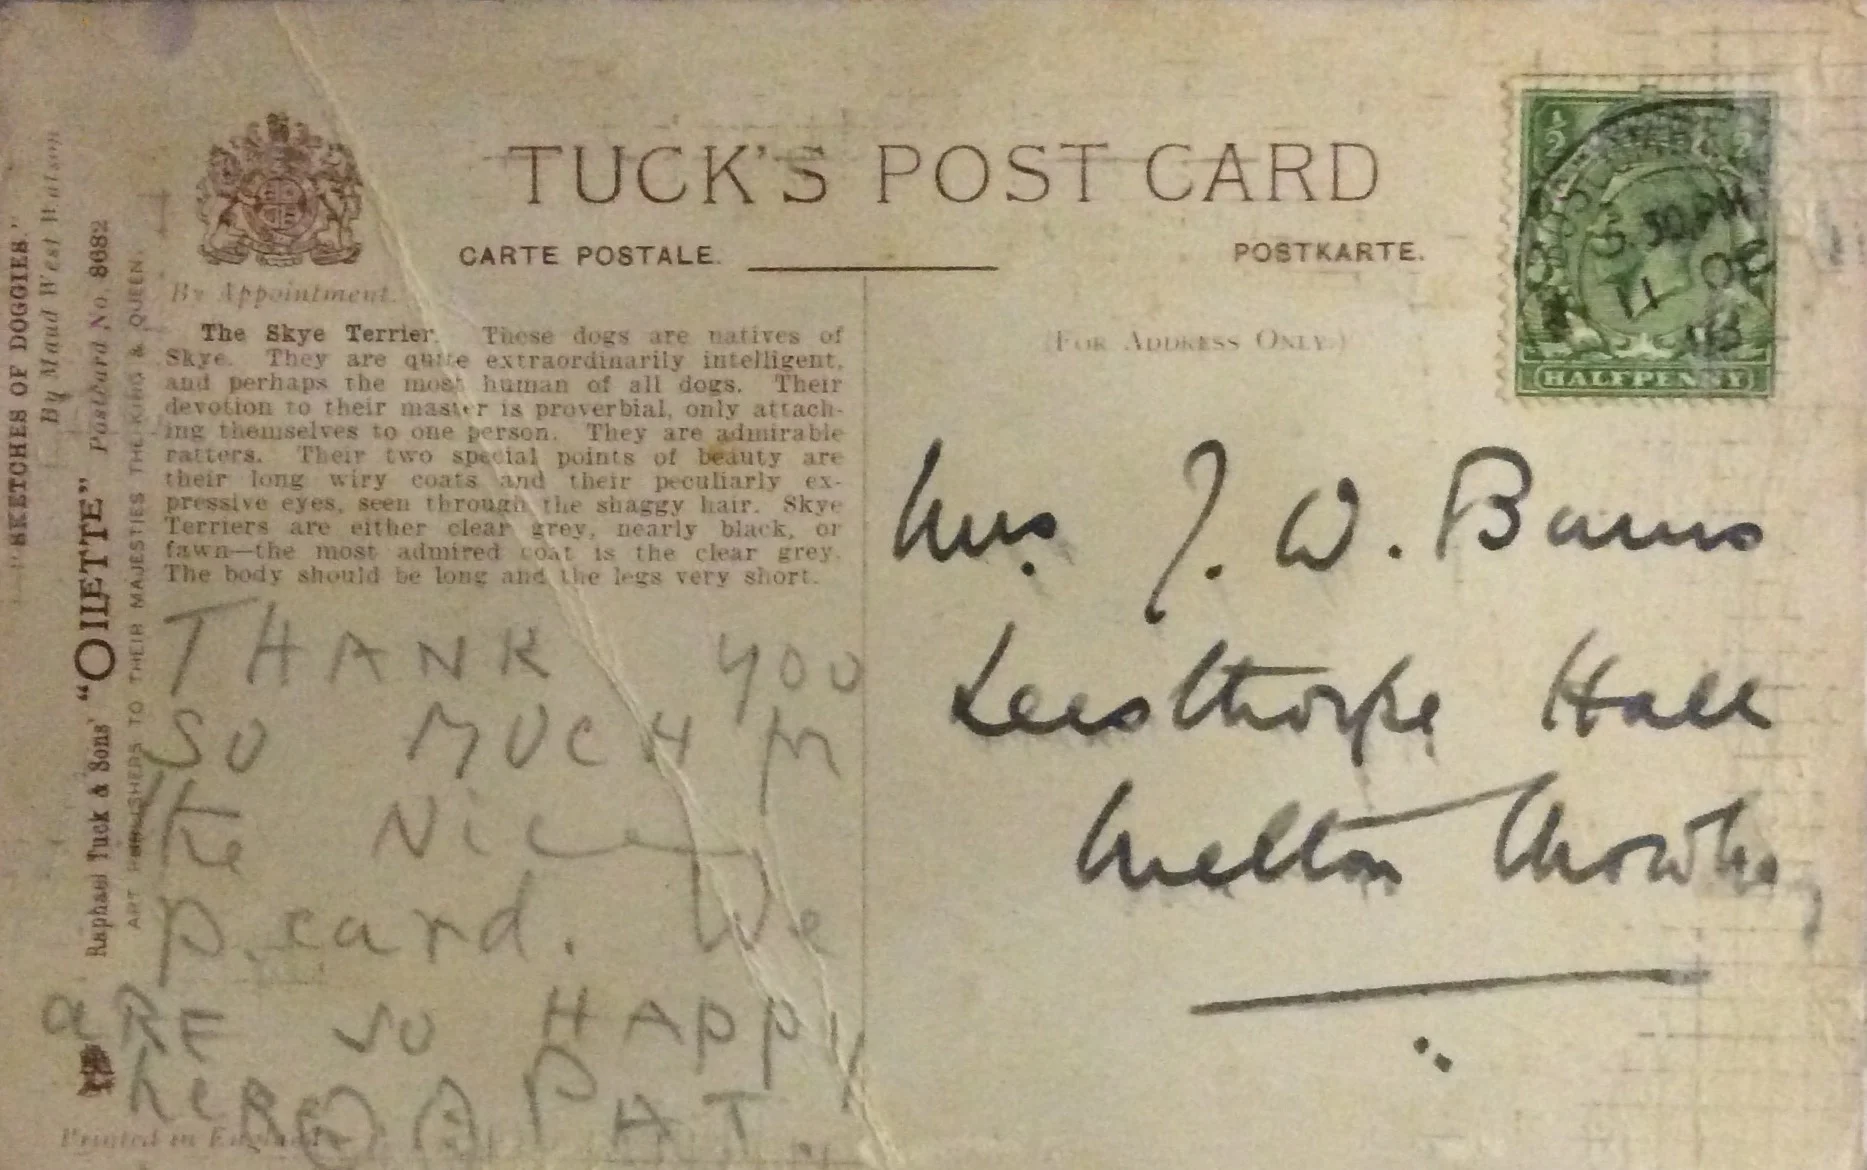 TUCK'S POST CARD
CARTE POSTALE.
POSTKARTE.
By Appointment.
(FOR ADDRESS ONLY.)
"SKETCHES OF DOGGIES."
By Maud West Watson
Raphael Tuck & Sons' "OILETTE" Postcard No. 8682
ART PUBLISHERS TO THEIR MAJESTIES THE KING & QUEEN.
The Skye Terrier. These dogs are natives of
Skye. They are quite extraordinarily intelligent,
and perhaps the most human of all dogs. Their
devotion to their master is proverbial, only attach-
ing themselves to one person. They are admirable
ratters. Their two special points of beauty are
their long wiry coats and their peculiarly ex-
pressive eyes, seen through the shaggy hair. Skye
Terriers are either clear grey, nearly black, or
fawn—the most admired coat is the clear grey.
The body should be long and the legs very short.
THANK YOU
SO MUCH
the Nice
p.card. We
aRE so HAppy
heRe PAT.
Printed in England
½ ½
3.30PM
11 OC
HALFPENNY
Mrs. J. W. Burns
Leesthorpe Hall
Melton Mowbray